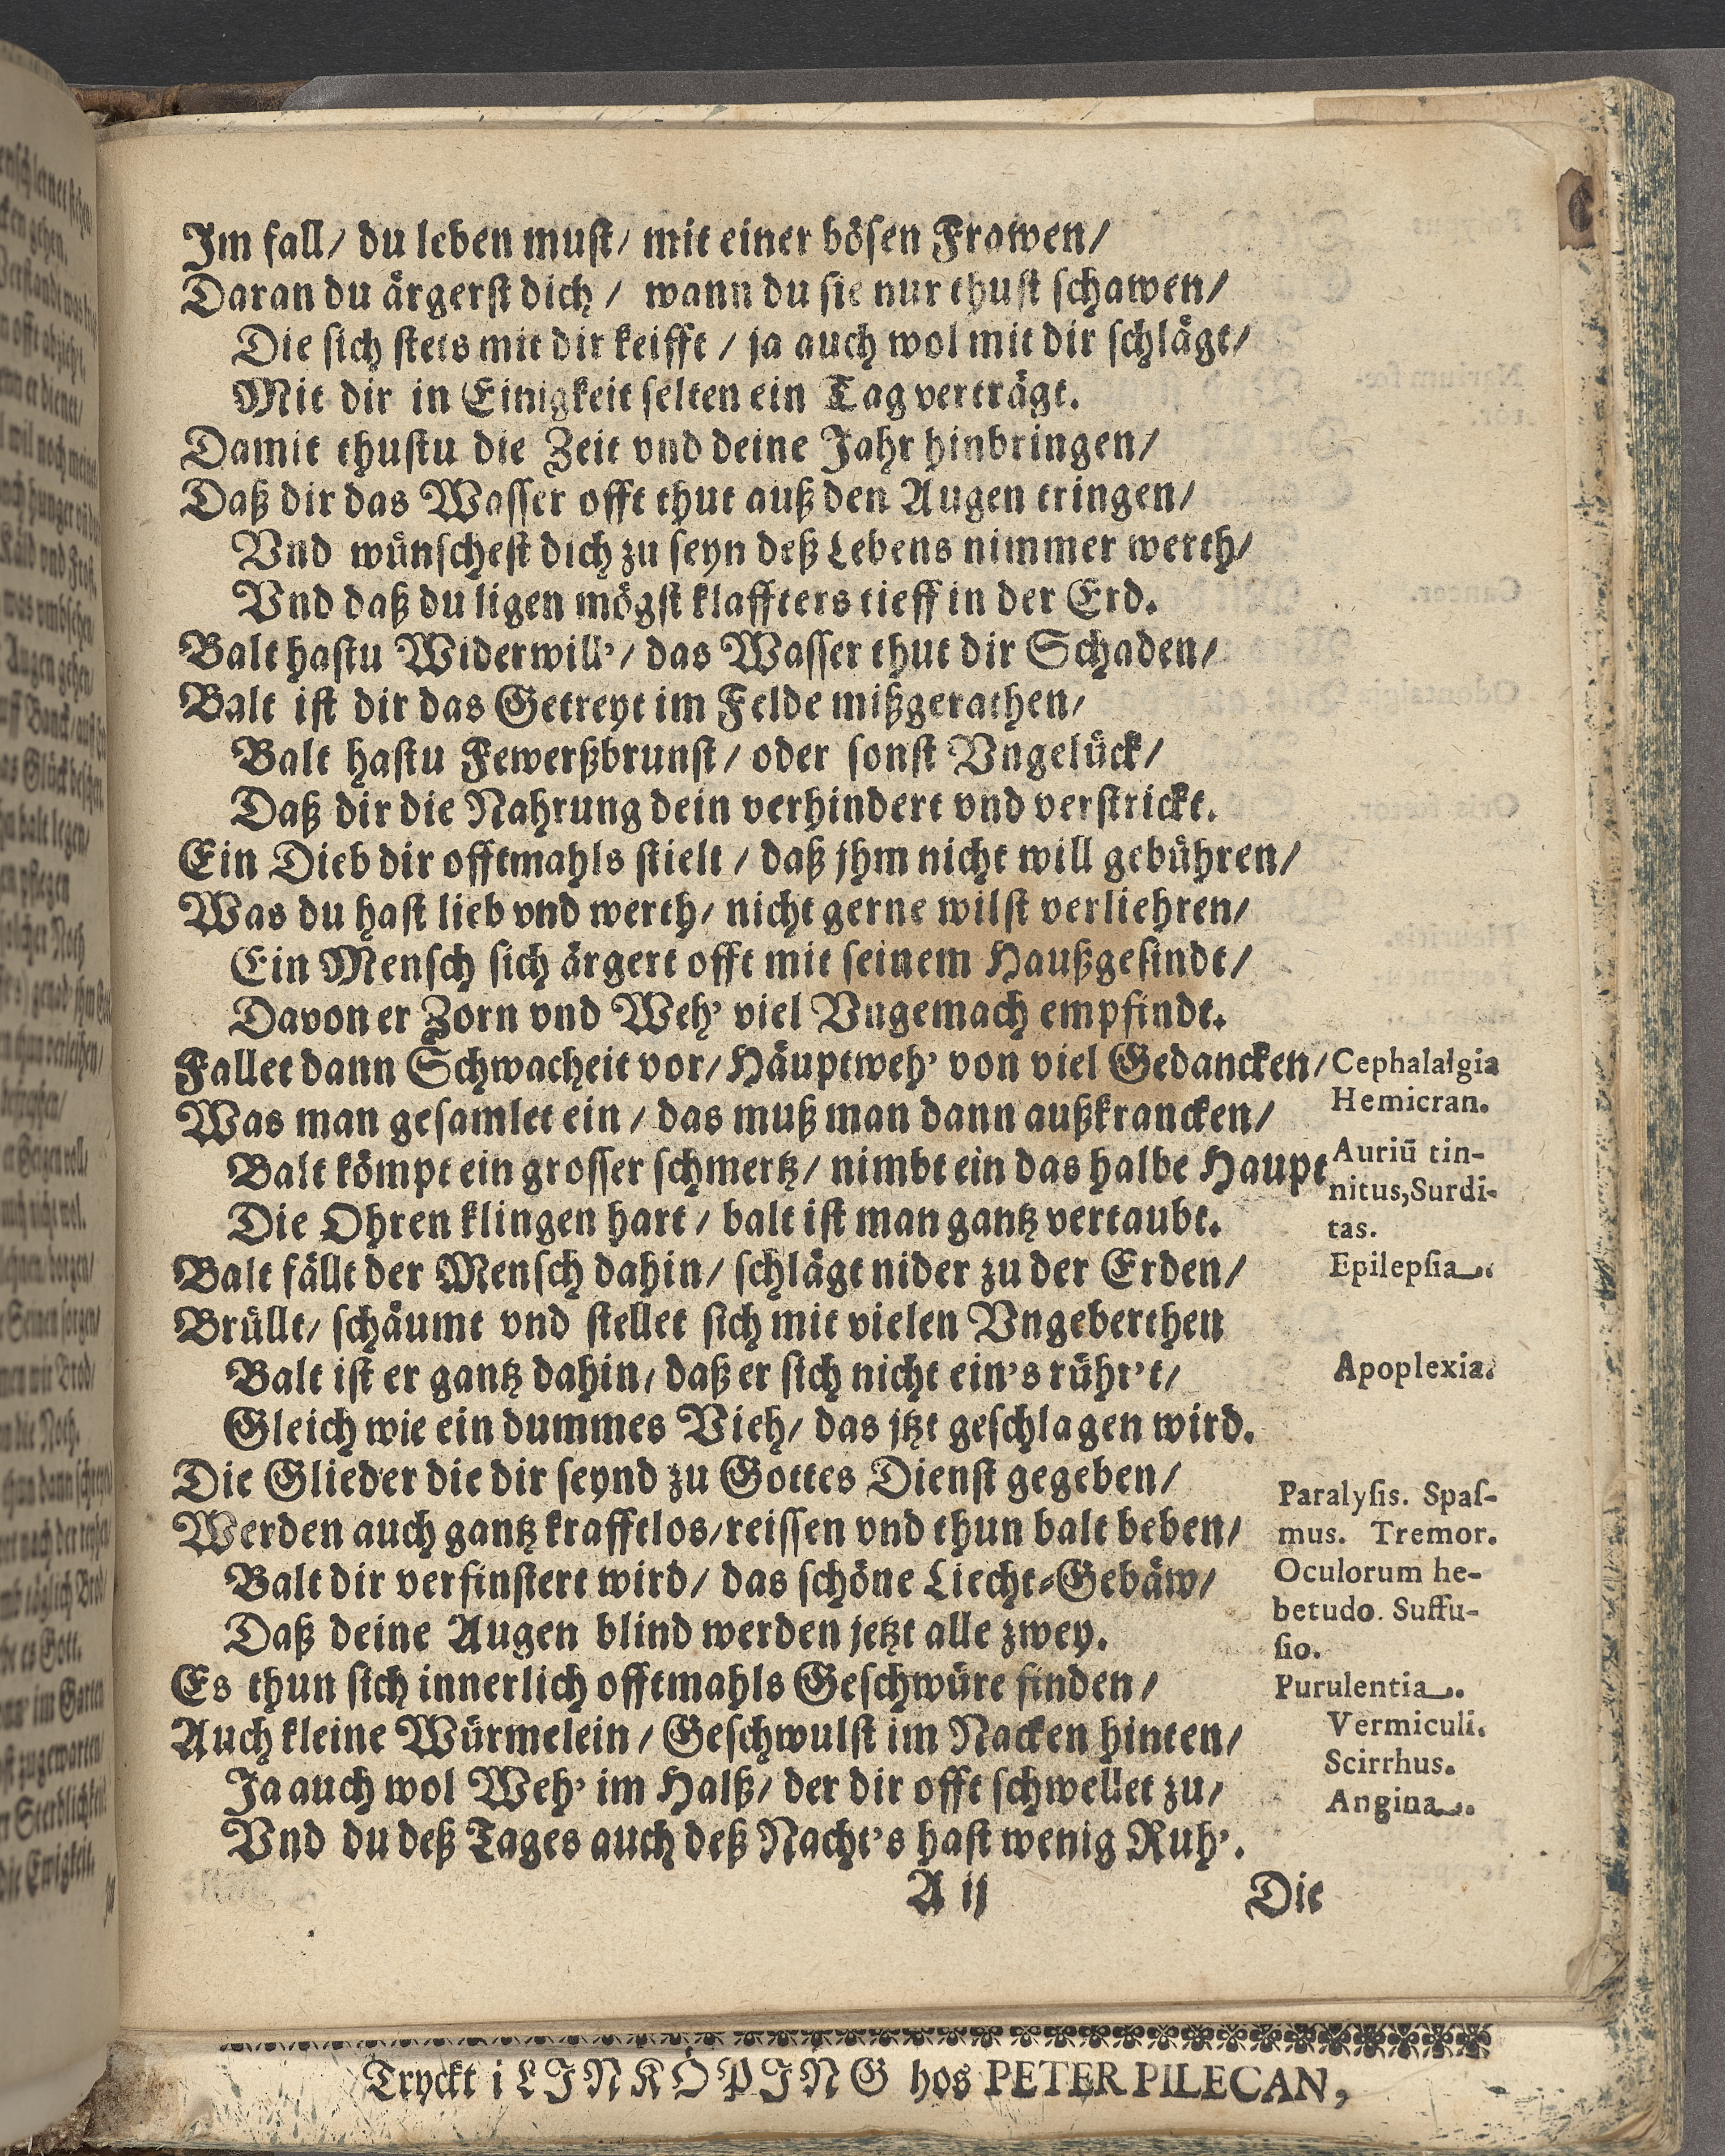 Im fall/ du leben must/ mit einer bösen Frawen/
Daran du ärgerst dich/ wann du sie nur thust schawen/
Die sich stets mit dir keifft/ ja auch wol mit dir schlägt/
Mit dir in Einigkeit selten ein Tag verträgt.
Damit thustu die Zeit vnd deine Jahr hinbringen/
Daß dir das Wasser offt thut auß den Augen tringen/
Vnd wünschest dich zu seyn deß Lebens nimmer werth/
Vnd daß du ligen mögst klaffters tieff in der Erd.
Balt hastu Widerwill'/ das Wasser thut dir Schaden/
Balt ist dir das Getreyt im Felde mißgerathen/
Balt hastu Fewerßbrunst/ oder sonst Vngelück/
Daß dir die Nahrung dein verhindert vnd verstrickt.
Ein Dieb dir offtmahls stielt/ daß jhm nicht will gebühren/
Was du hast lieb vnd werth/ nicht gerne wilst verliehren/
Ein Mensch sich ärgert offt mit seinem Haußgesindt/
Davon er Zorn vnd Weh' viel Vngemach empfindt.
Fallet dann Schwacheit vor/ Häuptweh' von viel Gedancken/ Cephalalgia
Was man gesamlet ein/ das muß man dann außkrancken/ Hemicran.
Balt kömpt ein grosser schmertz/ nimbt ein das halbe Haupt Auriū tin-
nitus, Surdi-
Die Ohren klingen hart/ balt ist man gantz vertaubt. tas.
Balt fällt der Mensch dahin/ schlägt nider zu der Erden/ Epilepsia.
Brüllt/ schäumt vnd stellet sich mit vielen Vngeberthen
Balt ist er gantz dahin/ daß er sich nicht ein's rühr't/ Apoplexia.
Gleich wie ein dummes Vieh/ das jtzt geschlagen wird.
Die Glieder die dir seynd zu Gottes Dienst gegeben/ Paralysis. Spas-
Werden auch gantz krafftlos/ reissen vnd thun balt beben/ mus. Tremor.
Balt dir verfinstert wird/ das schöne Liecht-Gebäw/ Oculorum he-
betudo. Suffu-
Daß deine Augen blind werden jetzt alle zwey. sio.
Es thun sich innerlich offtmahls Geschwüre finden/ Purulentia.
Auch kleine Würmelein/ Geschwulst im Nacken hinten/ Vermiculi.
Scirrhus.
Ja auch wol Weh' im Halß/ der dir offt schwellet zu/ Angina.
Vnd du deß Tages auch deß Nacht's hast wenig Ruh'.
A ij Die
Tryckt i LINKÖPING hos PETER PILECAN,